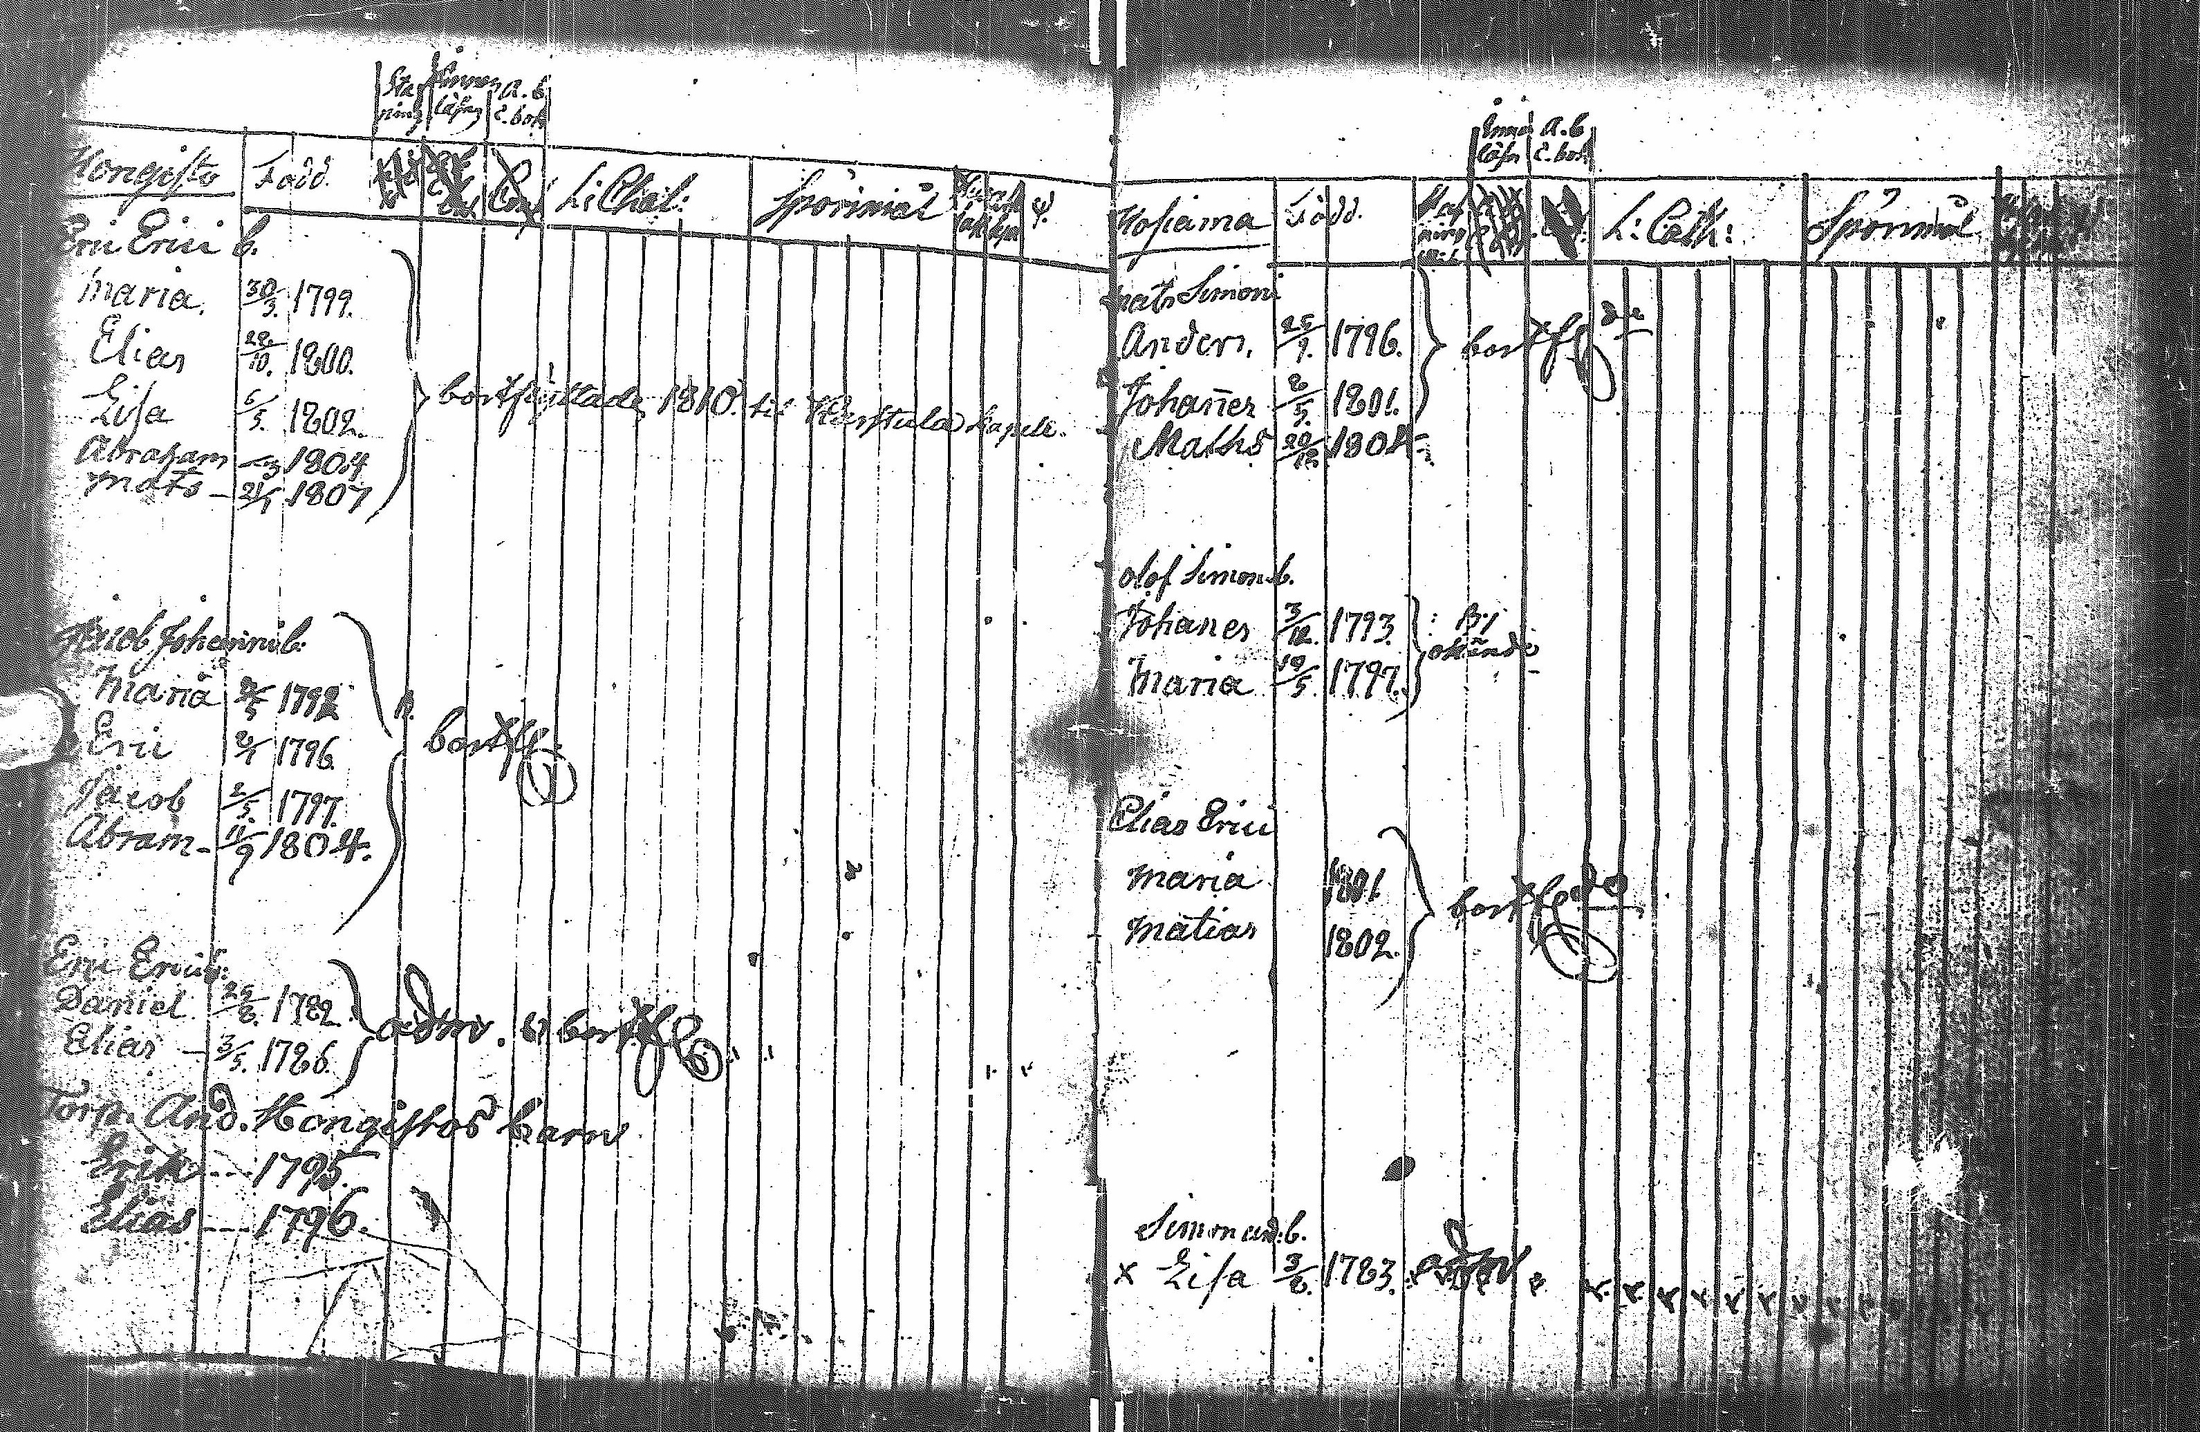 A. b
läsn c. bok
Hongisto Född. L: Chat: Spörsmål
Eric Erici b.
Maria. 30/3. 1799.
Elias 28/10. 1800.
Lisa 6/5. 1802.
Abraham 1804
Mats - 21/1 1807
bortflyttade 1810. til Karstula kapell.
Jacob Johanni b:
Maria 2/5 1792
Eric 2/1 1796
Jacob 2/5. 1797.
Abram - 11/9 1804.
bortfl.
Eric Erici b:
Daniel 1782.
Elias - 3/5. 1786.
adm. o bortfl
Torp. And. Hongistos barn
Erik --- 1795.
Elias --- 1796.
A. b
läsn c. bok
Född. L: Cath: Spörsmål
Mats Simon
Anders, 25/9. 1796.
Johanes 2/5. 1801.
Maths 20/12 1804
bortfl de
Olof Simon b.
Johanes 3/12. 1793.
Maria 19/5. 1797.
okände
Elias Erici
Maria 1801
Matias 1802.
bortfl de
Simon and: b.
x Lisa 3/8. 1783. adm